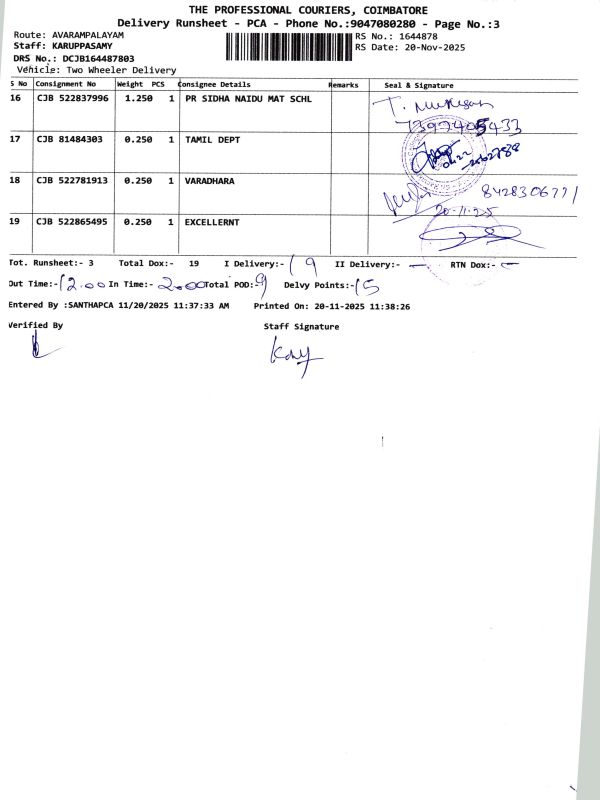 THE PROFESSIONAL COURIERS, COIMBATORE
Delivery Runsheet - PCA - Phone No.:9047080280 - Page No.:3
Route: AVARAMPALAYAM RS No.: 1644878
Staff: KARUPPASAMY RS Date: 20-Nov-2025
DRS No.: DCJB164487803
Vehicle: Two Wheeler Delivery
S No Consignment No Weight PCS Consignee Details Remarks Seal & Signature
16 CJB 522837996 1.250 1 PR SIDHA NAIDU MAT SCHL T. Murugan
17 CJB 81484303 0.250 1 TAMIL DEPT
18 CJB 522781913 0.250 1 VARADHARA
20-11-25
19 CJB 522865495 0.250 1 EXCELLERNT
Tot. Runsheet:- 3 Total Dox:- 19 I Delivery:- 19 II Delivery:- — RTN Dox:- —
Out Time:- 12.00 In Time:- 2.00 Total POD:- 9 Delvy Points:- 15
Entered By :SANTHAPCA 11/20/2025 11:37:33 AM Printed On: 20-11-2025 11:38:26
Verified By Staff Signature